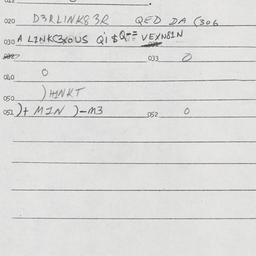 020 D3RLINK83R QED DA (306
030 A LINKC3XOUS Qi $Q-= VEXN8IN
033 0
040 0
050 )HNKT
051 )+ MIN )-M3 052 0